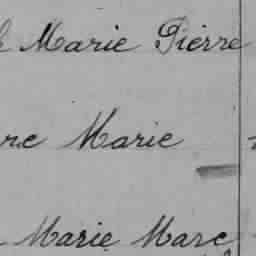 Marie Pierre
re Marie
Marie Marc